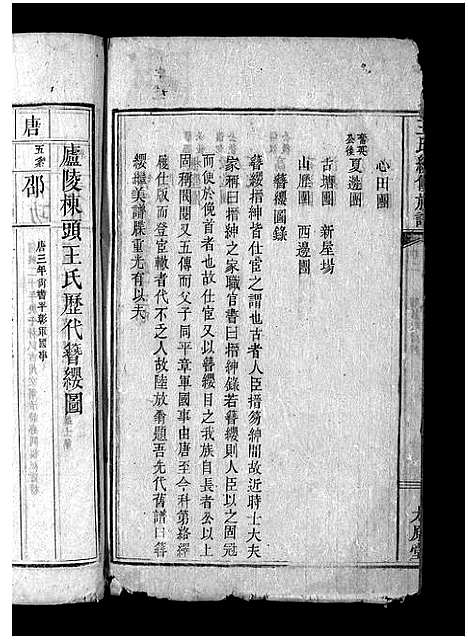 王氏續修族譜
太原堂
心田團
奮英公後 夏瀼團
古塘團 新屋場
山歷團 西邊團
簪纓圖錄
簪纓縉紳皆仕宦之謂也古者人臣搢笏紳間故近時士大夫
家稱曰搢紳之家職官書曰搢紳錄若簪纓則人臣以之固冠
而使不於俛首者也故仕宦又以簪纓目之我族自長者公以上
固稱閥閱又五傳而父子同平章軍國事由唐至今科第絡繹
輿仕版而登宦轍者代不乏人故陸放翁題吾先代舊譜曰簪
纓繼美譜牒重光有以夫
廬陵棟頭王氏歷代簪纓圖
唐
五季 邵
唐三年同書平彰軍國事